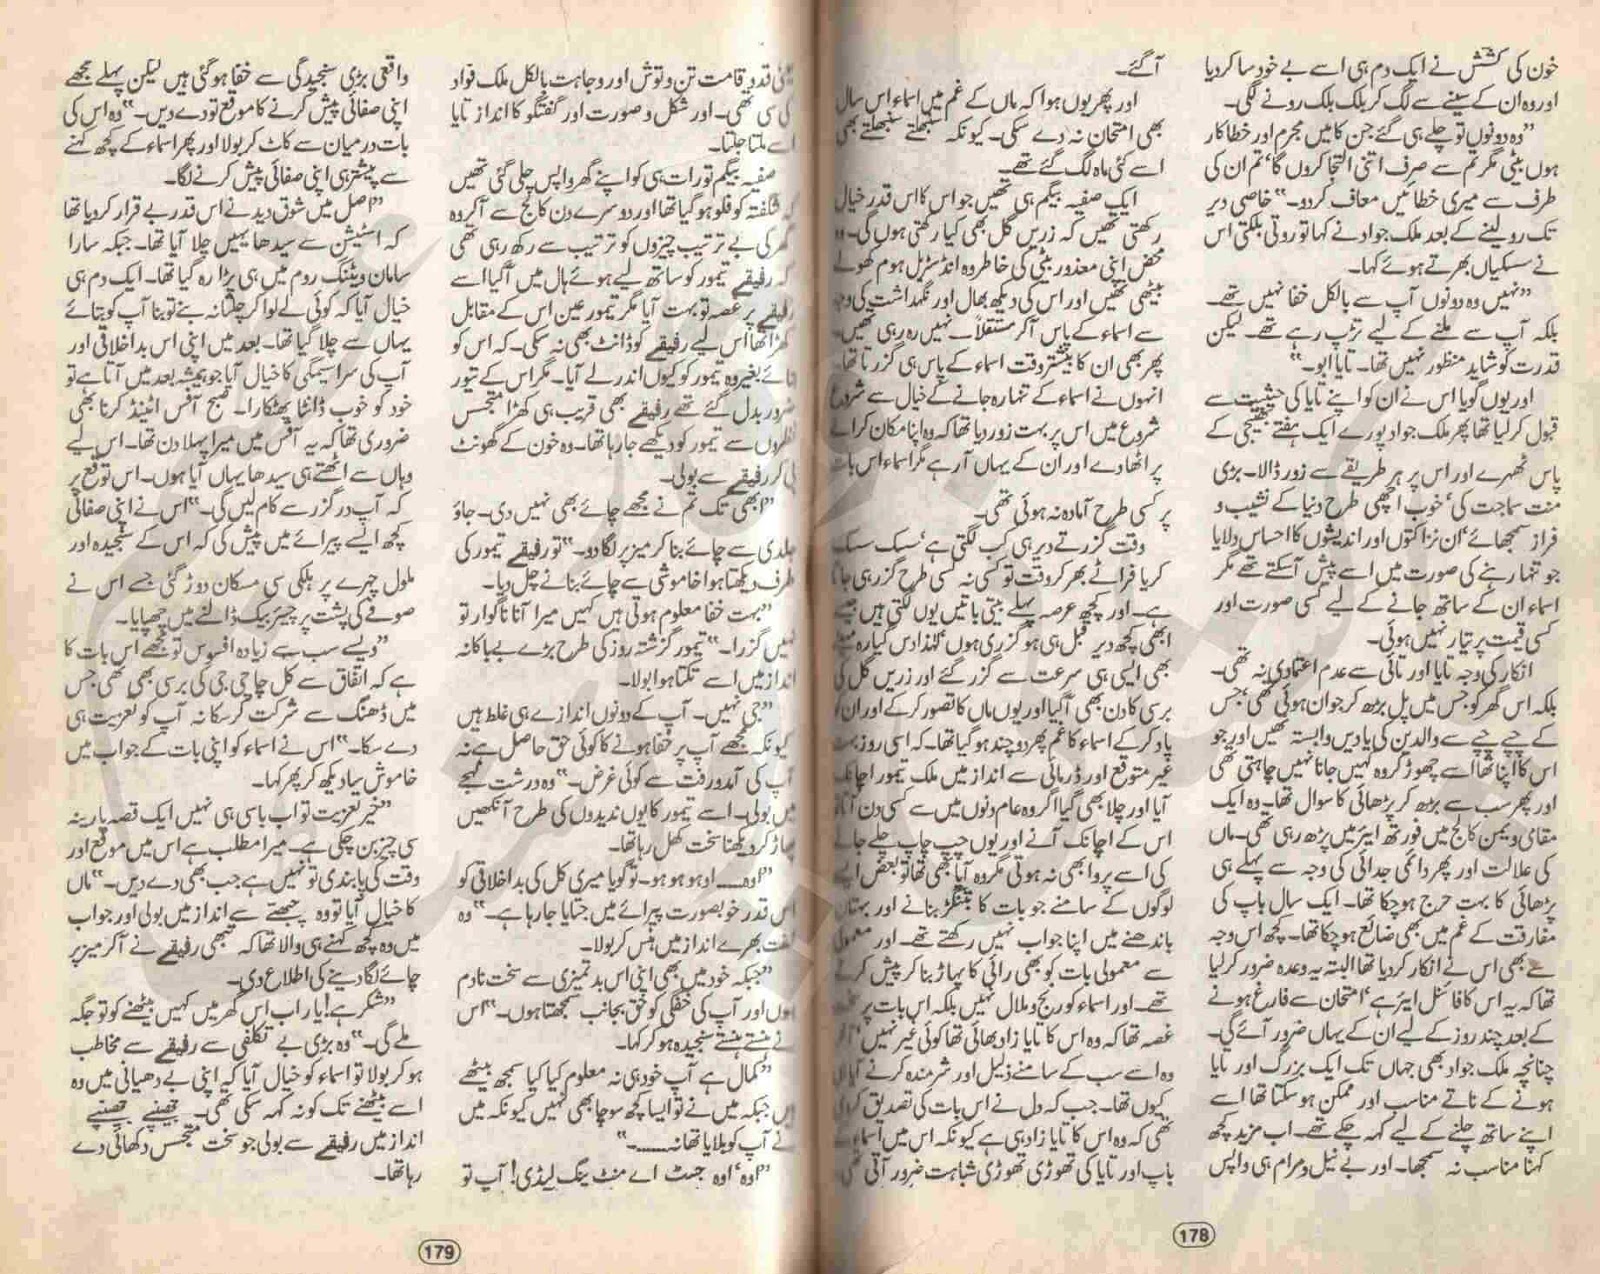 خون کی کشش نے ایک دم ہی اسے بے خود سا کر دیا
اور وہ ان کے سینے سے لگ کر بلک بلک رونے لگی۔
”وہ دونوں تو چلے ہی گئے جن کا میں مجرم اور خطا کار
ہوں بیٹی مگر تم سے صرف اتنی التجا کروں گا‘ تم ان کی
طرف سے میری خطائیں معاف کر دو۔“ خاصی دیر
تک رو لینے کے بعد ملک جواد نے کہا تو روتی بلکتی اس
نے سسکیاں بھرتے ہوئے کہا۔
”نہیں وہ دونوں آپ سے بالکل خفا نہیں تھے۔
بلکہ آپ سے ملنے کے لیے تڑپ رہے تھے۔ لیکن
قدرت کو شاید منظور نہیں تھا۔ تایا ابو۔“
اور یوں گویا اس نے ان کو اپنے تایا کی حیثیت سے
قبول کر لیا تھا پھر ملک جواد پورے ایک ہفتے بھتیجی کے
پاس ٹھہرے اور اس پر ہر طریقے سے زور ڈالا۔ بڑی
منت سماجت کی‘ خوب اچھی طرح دنیا کے نشیب و
فراز سمجھائے‘ ان نزاکتوں اور اندیشوں کا احساس دلایا
جو تنہا رہنے کی صورت میں اسے پیش آسکتے تھے مگر
اسماء ان کے ساتھ جانے کے لیے کسی صورت اور
کسی قیمت پر تیار نہیں ہوئی۔
انکار کی وجہ تایا اور تائی سے عدم اعتمادی نہ تھی۔
بلکہ اس گھر کو جس میں پل بڑھ کر جوان ہوئی تھی‘ جس
کے چپے چپے سے والدین کی یادیں وابستہ تھیں اور جو
اس کا اپنا تھا اسے چھوڑ کر وہ کہیں جانا نہیں چاہتی تھی
اور پھر سب سے بڑھ کر پڑھائی کا سوال تھا۔ وہ ایک
مقامی ویمن کالج میں فورتھ ایئر میں پڑھ رہی تھی۔ ماں
کی علالت اور پھر دائمی جدائی کی وجہ سے پہلے ہی
پڑھائی کا بہت حرج ہو چکا تھا۔ ایک سال باپ کی
مفارقت کے غم میں بھی ضائع ہو چکا تھا۔ کچھ اس وجہ
سے بھی اس نے انکار کر دیا تھا البتہ یہ وعدہ ضرور کر لیا
تھا کہ یہ اس کا فائنل ایئر ہے‘ امتحان سے فارغ ہونے
کے بعد چند روز کے لیے ان کے یہاں ضرور آئے گی۔
چنانچہ ملک جواد بھی جہاں تک ایک بزرگ اور تایا
ہونے کے ناتے مناسب اور ممکن ہو سکتا تھا اسے
اپنے ساتھ چلنے کے لیے کہہ چکے تھے۔ اب مزید کچھ
کہنا مناسب نہ سمجھا۔ اور بے نیل و مرام ہی واپس
آگئے۔
اور پھر یوں ہوا کہ ماں کے غم میں اسماء اس سال
بھی امتحان نہ دے سکی۔ کیونکہ سنبھلتے سنبھلتے بھی
اسے کئی ماہ لگ گئے تھے۔
ایک صفیہ بیگم ہی تھیں جو اس کا اس قدر خیال
رکھتی تھیں کہ زریں گل بھی کیا رکھتی ہوں گی۔
محض اپنی معذور بیٹی کی خاطر وہ انڈسٹریل ہوم کھولے
بیٹھی تھیں اور اس کی دیکھ بھال اور نگہداشت کی وجہ
سے اسماء کے پاس آکر مستقلاً۔ نہیں رہ رہی تھیں۔
پھر بھی ان کا بیشتر وقت اسماء کے پاس ہی گزرتا تھا۔
انہوں نے اسماء کے تنہا رہ جانے کے خیال سے شروع
شروع میں اس پر بہت زور دیا تھا کہ وہ اپنا مکان کرائے
پر اٹھا دے اور ان کے یہاں آرہے مگر اسماء اس بات
پر کسی طرح آمادہ نہ ہوئی تھی۔
وقت گزرتے دیر ہی کب لگتی ہے‘ سبک سبک
کر یا فراٹے بھر کر وقت تو کسی نہ کسی طرح گزر ہی جاتا
ہے۔ اور کچھ عرصہ پہلے بیتی باتیں یوں لگتی ہیں جیسے
ابھی کچھ دیر قبل ہی ہو گزری ہوں‘ لہٰذا دس گیارہ مہینے
بھی ایسی ہی سرعت سے گزر گئے اور زریں گل کی
برسی کا دن بھی آگیا اور یوں ماں کا تصور کر کے اور ان کو
یاد کر کے اسماء کا غم پھر دو چند ہو گیا تھا۔ کہ اسی روز بہت
غیر متوقع اور ڈرامائی سے انداز میں ملک تیمور اچانک
آیا اور چلا بھی گیا اگر وہ عام دنوں میں سے کسی دن آتا تو
اس کے اچانک آنے اور یوں چپ چاپ چلے جانے
کی اسے پروا بھی نہ ہوتی مگر وہ آیا بھی تھا تو بعض ایسے
لوگوں کے سامنے جو بات کا بتنگڑ بنانے اور بہتان
باندھنے میں اپنا جواب نہیں رکھتے تھے۔ اور معمولی
سے معمولی بات کو بھی رائی کا پہاڑ بنا کر پیش کرتے
تھے۔ اور اسماء کو رنج و ملال نہیں بلکہ اس بات پر سخت
غصہ تھا کہ وہ اس کا تایا زاد بھائی تھا کوئی غیر نہیں‘
وہ اسے سب کے سامنے ذلیل اور شرمندہ کرنے آیا ہی
کیوں تھا۔ جب کہ دل نے اس بات کی تصدیق کر دی
تھی کہ وہ اس کا تایا زاد ہی ہے کیونکہ اس میں اسماء کے
باپ اور تایا کی تھوڑی تھوڑی شباہت ضرور آتی تھی
178
یعنی قد و قامت تن و توش اور وجاہت بالکل ملک فواد
کی سی تھی۔ اور شکل و صورت اور گفتگو کا انداز تایا
سے ملتا جلتا۔
صفیہ بیگم تو رات ہی کو اپنے گھر واپس چلی گئی تھیں
کہ شگفتہ کو فلو ہو گیا تھا اور دوسرے دن کالج سے آکر وہ
گھر کی بے ترتیب چیزوں کو ترتیب سے رکھ رہی تھی
کہ رفیقے تیمور کو ساتھ لیے ہوئے ہال میں آگیا اسے
رفیقے پر غصہ تو بہت آیا مگر تیمور عین اس کے مقابل
کھڑا تھا اس لیے رفیقے کو ڈانٹ بھی نہ سکی۔ کہ اس کو
بتائے بغیر وہ تیمور کو کیوں اندر لے آیا۔ مگر اس کے تیور
ضرور بدل گئے تھے رفیقے بھی قریب ہی کھڑا متجسس
نظروں سے تیمور کو دیکھے جا رہا تھا۔ وہ خون کے گھونٹ
پی کر رفیقے سے بولی۔
”ابھی تک تم نے مجھے چائے بھی نہیں دی۔ جاؤ
جلدی سے چائے بنا کر میز پر لگا دو۔“ تو رفیقے تیمور کی
طرف دیکھتا ہوا خاموشی سے چائے بنانے چل دیا۔
”بہت خفا معلوم ہوتی ہیں کہیں میرا آنا ناگوار تو
نہیں گزرا۔“ تیمور گزشتہ روز کی طرح بڑے بے باکانہ
انداز میں اسے تکتا ہوا بولا۔
”جی نہیں۔ آپ کے دونوں اندازے ہی غلط ہیں
کیونکہ مجھے آپ پر خفا ہونے کا کوئی حق حاصل ہے نہ
آپ کی آمد و رفت سے کوئی غرض۔“ وہ درشت لہجے
میں بولی۔ اسے تیمور کا یوں ندیدوں کی طرح آنکھیں
پھاڑ کر دیکھنا سخت کھل رہا تھا۔
”اوہ۔۔۔ اوہو ہو ہو۔ تو گویا میری کل کی بد اخلاقی کو
اس قدر خوبصورت پیرائے میں جتایا جا رہا ہے۔“ وہ
خفت بھرے انداز میں ہنس کر بولا۔
”جبکہ خود میں بھی اپنی اس بدتمیزی سے سخت نادم
ہوں اور آپ کی خفگی کو حق بجانب سمجھتا ہوں۔“ اس
نے ہنستے ہنستے سنجیدہ ہو کر کہا۔
”کمال ہے آپ خود ہی نہ معلوم کیا کیا سمجھ بیٹھے
ہیں جبکہ میں نے تو ایسا کچھ سوچا بھی نہیں کیونکہ میں
نے آپ کو بلایا تھا نہ۔۔۔۔۔“
”اوہ‘ اوہ جسٹ اے منٹ ینگ لیڈی! آپ تو
واقعی بڑی سنجیدگی سے خفا ہو گئی ہیں لیکن پہلے مجھے
اپنی صفائی پیش کرنے کا موقع تو دے دیں۔“ وہ اس کی
بات درمیان سے کاٹ کر بولا اور پھر اسماء کے کچھ کہنے
سے پیشتر ہی اپنی صفائی پیش کرنے لگا۔
”اصل میں شوق دید نے اس قدر بے قرار کر دیا تھا
کہ اسٹیشن سے سیدھا یہیں چلا آیا تھا۔ جبکہ سارا
سامان ویٹنگ روم میں ہی پڑا رہ گیا تھا۔ ایک دم ہی
خیال آیا کہ کوئی لے لوا کر چلتا نہ بنے تو بنا آپ کو بتائے
یہاں سے چلا گیا تھا۔ بعد میں اپنی اس بد اخلاقی اور
آپ کی سراسیمگی کا خیال آیا جو ہمیشہ بعد میں آتا ہے تو
خود کو خوب ڈانٹا پھٹکارا۔ صبح آفس اٹینڈ کرنا بھی
ضروری تھا کہ یہ آفس میں میرا پہلا دن تھا۔ اس لیے
وہاں سے اٹھتے ہی سیدھا یہاں آیا ہوں۔ اس توقع پر
کہ آپ درگزر سے کام لیں گی۔“ اس نے اپنی صفائی
کچھ ایسے پیرائے میں پیش کی کہ اس کے سنجیدہ اور
ملول چہرے پر ہلکی سی مسکان دوڑ گئی جسے اس نے
صوفے کی پشت پر چیئر بیک ڈالنے میں چھپایا۔
”ویسے سب سے زیادہ افسوس تو مجھے اس بات کا
ہے کہ اتفاق سے کل چاچی جی کی برسی بھی تھی جس
میں ڈھنگ سے شرکت کر سکا نہ آپ کو تعزیت ہی
دے سکا۔“ اس نے اسماء کو اپنی بات کے جواب میں
خاموش سا دیکھ کر پھر کہا۔
”خیر تعزیت تو اب باسی ہی نہیں ایک قصہ پارینہ
سی چیز بن چکی ہے۔ میرا مطلب ہے اس میں موقع اور
وقت کی پابندی تو نہیں ہے جب بھی دے دیں۔“ ماں
کا خیال آیا تو وہ چبھتے سے انداز میں بولی اور جواب
میں وہ کچھ کہنے ہی والا تھا کہ تبھی رفیقے نے آکر میز پر
چائے لگا دینے کی اطلاع دی۔
”شکر ہے! یار اب اس گھر میں کہیں بیٹھنے کو تو جگہ
ملے گی۔“ وہ بڑی بے تکلفی سے رفیقے سے مخاطب
ہو کر بولا تو اسماء کو خیال آیا کہ اپنی بے دھیانی میں وہ
اسے بیٹھنے تک کو نہ کہہ سکی تھی۔ جھینپے جھینپے
انداز میں رفیقے سے بولی جو سخت متجسس دکھائی دے
رہا تھا۔
179